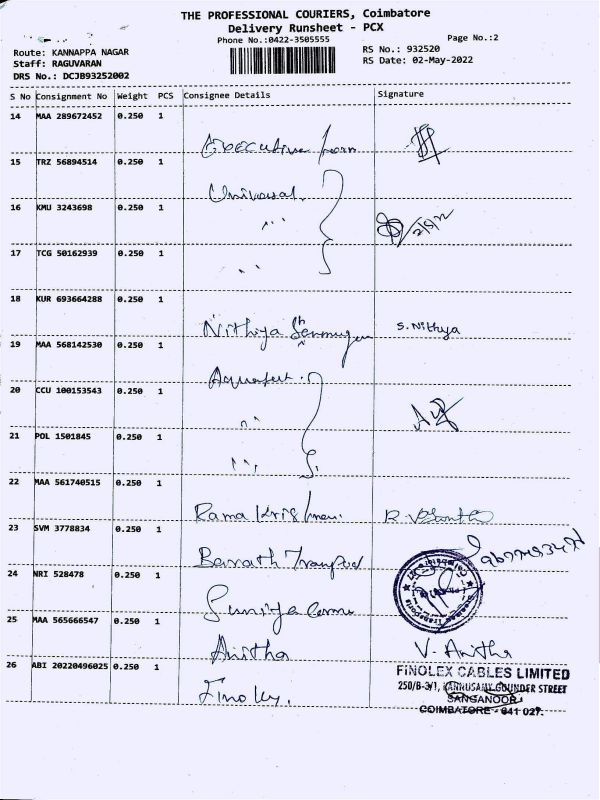 THE PROFESSIONAL COURIERS, Coimbatore
Delivery Runsheet - PCX
Phone No.:0422-3505555
Page No.:2
Route: KANNAPPA NAGAR
Staff: RAGUVARAN
DRS No.: DCJB93252002
RS No.: 932520
RS Date: 02-May-2022
S No Consignment No Weight PCS Consignee Details Signature
14 MAA 289672452 0.250 1
Executive
15 TRZ 56894514 0.250 1
Universal
16 KMU 3243698 0.250 1
17 TCG 50162939 0.250 1
18 KUR 693664288 0.250 1
Nithiya S. Nithya
19 MAA 568142530 0.250 1
20 CCU 100153543 0.250 1
21 POL 1501845 0.250 1
22 MAA 561740515 0.250 1
Rama
23 SVM 3778834 0.250 1
24 NRI 528478 0.250 1
25 MAA 565666547 0.250 1
Anitha V. Anitha
26 ABI 20220496025 0.250 1
FINOLEX CABLES LIMITED
250/B-3/1, KANNUSAMY GOUNDER STREET
SANGANOOR
COIMBATORE - 641 027.